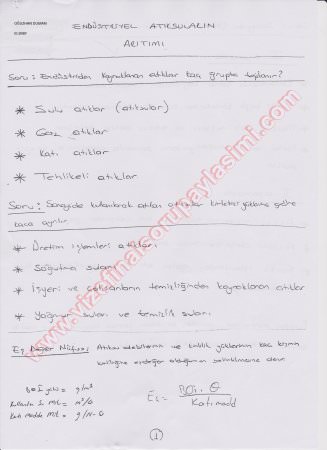 OĞUZHAN DUMAN
ENDÜSTRİYEL ATIKSULARIN
ARITIMI
Soru: Endüstriden kaynaklanan atıklar kaç grupta toplanır?
* Sulu atıklar (atıksular)
* Gaz atıklar
* Katı atıklar
* Tehlikeli atıklar
Soru: Sanayide kullanılarak atılan atıksular kirletici yüklerine göre
kaça ayrılır
* Üretim işlemleri atıkları
* Soğutma suları
* İşyeri ve çalışanların temizliğinden kaynaklanan atıklar
* Yağmur suları ve temizlik suları
Eş Değer Nüfus: Atıksu debilerinin ve kirlilik yüklerinin kaç kişinin
kirliliğine eşdeğer olduğunun belirtilmesine denir
g/m³
m³/G
Katı madde Mik = g/N-G
www.vizefinalsorupaylasimi.com
1